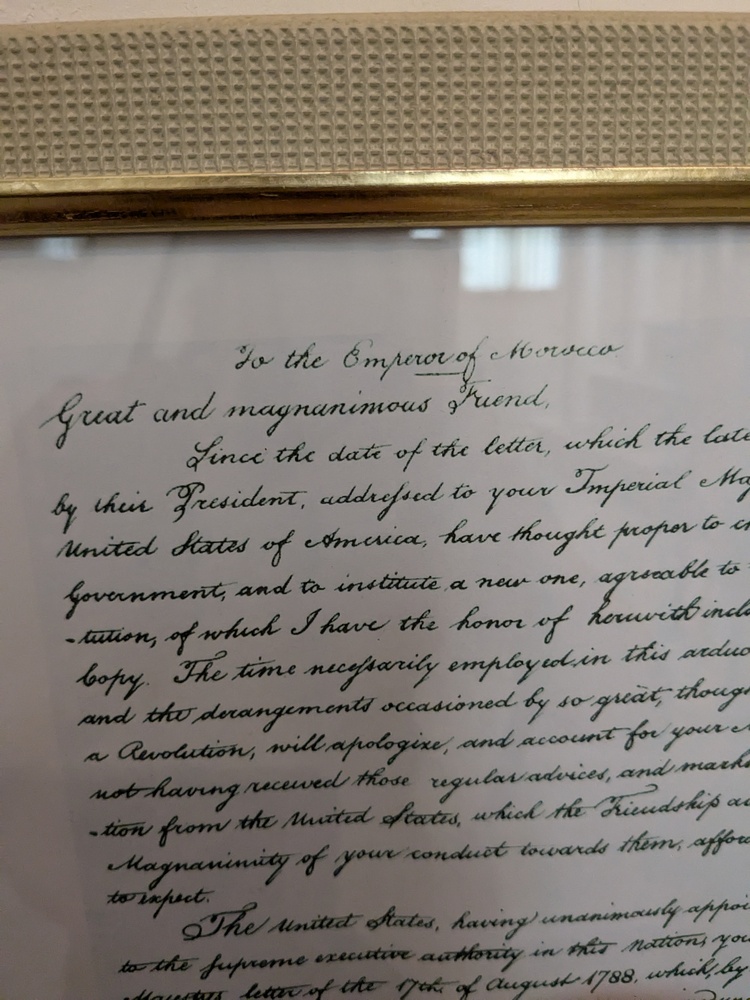 To the Emperor of Morocco
Great and magnanimous Friend,
Since the date of the letter, which the late
by their President, addressed to your Imperial Ma
United States of America, have thought proper to
Government, and to institute a new one, agreeable to
-tution, of which I have the honor of herewith inclo
Copy. The time necessarily employed in this arduo
and the derangements occasioned by so great, though
a Revolution, will apologize, and account for your
not having received those regular advices, and marks
-tion from the United States, which the Friendship a
Magnanimity of your conduct towards them, affor
to expect.
The United States, having unanimously appoi
to the supreme executive authority in this Nation, you
Majesty's letter of the 17th. of August 1788. which, by